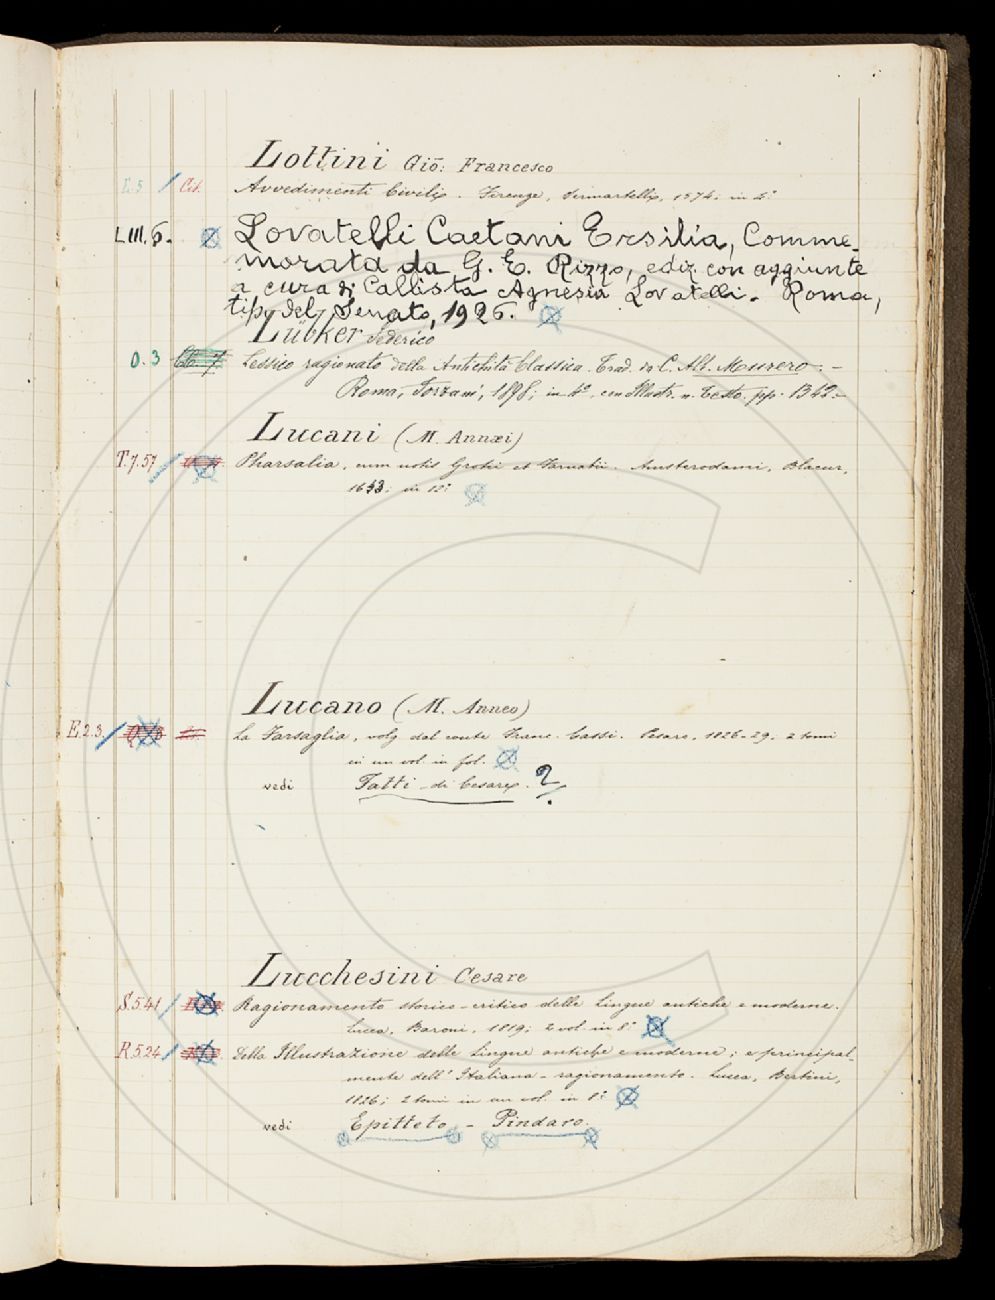 Lottini Giō: Francesco
E.5 Cit. Avvedimenti Civili. Firenze, Sermartelli, 1574; in 4º
L III. 6. Lovatelli Caetani Ersilia, Comme-
morata da G. E. Rizzo, ediz. con aggiunte
a cura di Callista Agnesia Lovatelli. Roma,
tip. del Senato, 1926.
Lübker Federico
O. 3 Lessico ragionato della Antichità Classica. Trad. di C. Alb. Murero. -
Roma, Forzani, 1898; in 4º, con Illustr. n. Testo. pp. 1342.-
Lucani (M. Annæi)
T.7.57 Pharsalia, cum notis Grotii et Farnabii. Amsterodami, Blaeur,
1643; in 12º
Lucano (M. Anneo)
E.2.3. La Farsaglia, volg. dal conte Franc. Cassi. Pesaro, 1826-29; 2 tomi
in un vol. in fol.
vedi Fatti di Cesare. ?
Lucchesini Cesare
S.5.41 Ragionamento storico-critico delle Lingue antiche e moderne.
Lucca, Baroni, 1819; 2 vol. in 8º
R.5.24 Della Illustrazione delle Lingue antiche e moderne; e principal-
mente dell' Italiana - ragionamento. Lucca, Bertini,
1826; 2 tomi in un vol. in 8º
vedi Epitteto, - Pindaro.